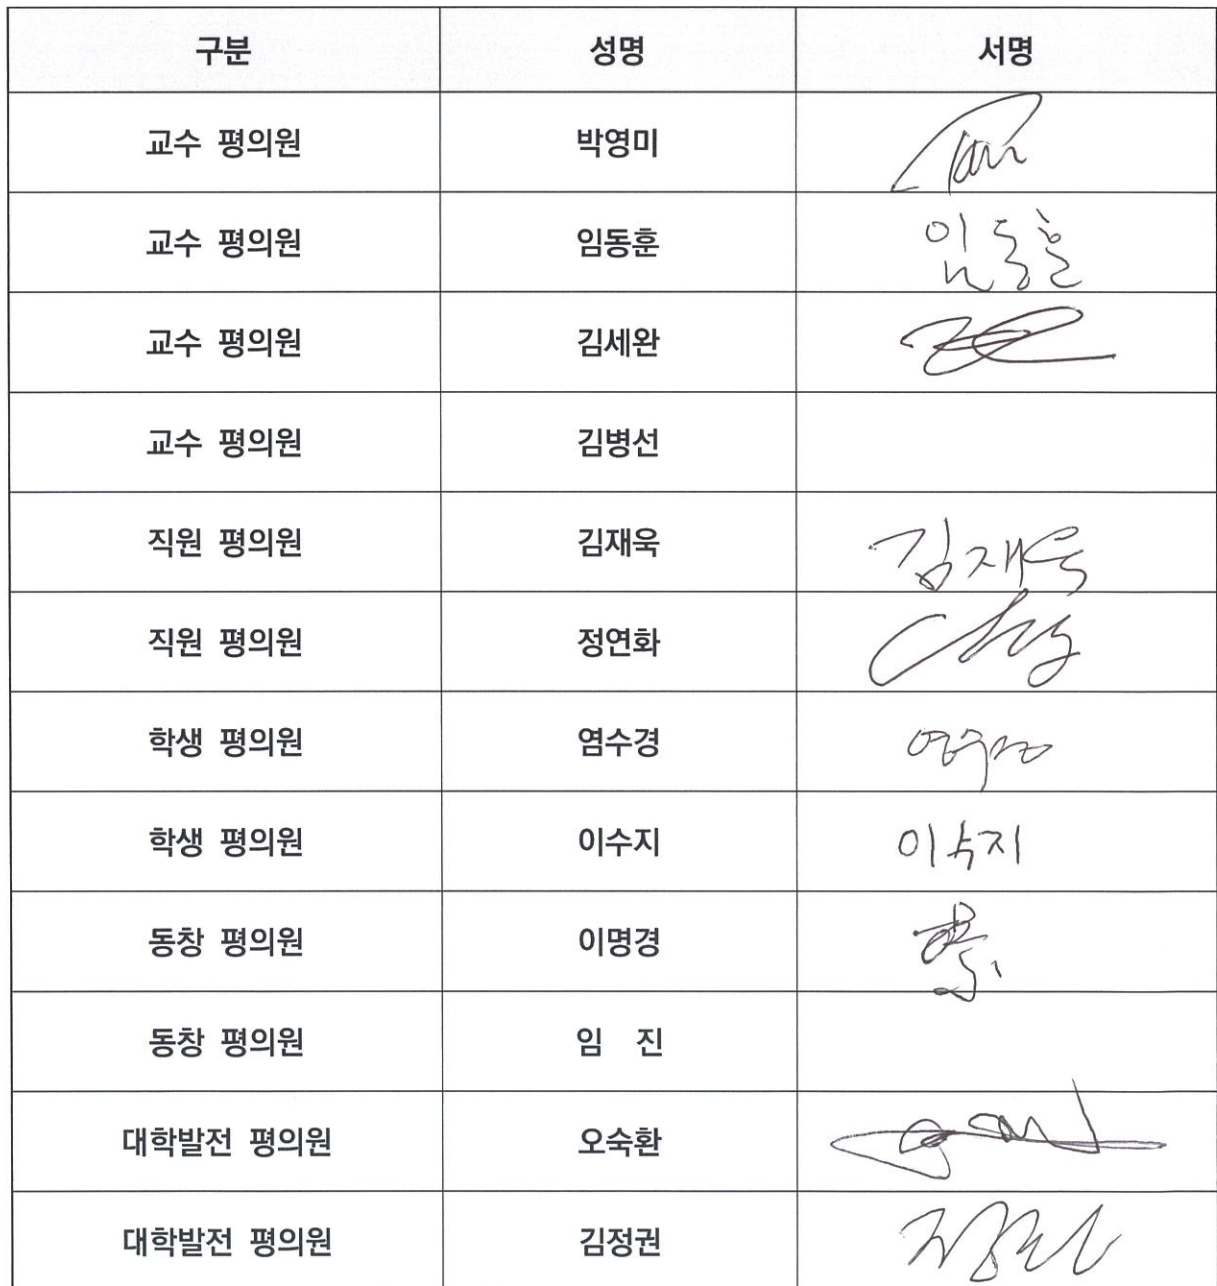 구분 성명 서명
교수 평의원 박영미
교수 평의원 임동훈 임동훈
교수 평의원 김세완
교수 평의원 김병선
직원 평의원 김재욱 김재욱
직원 평의원 정연화
학생 평의원 염수경
학생 평의원 이수지 이수지
동창 평의원 이명경
동창 평의원 임 진
대학발전 평의원 오숙환
대학발전 평의원 김정권